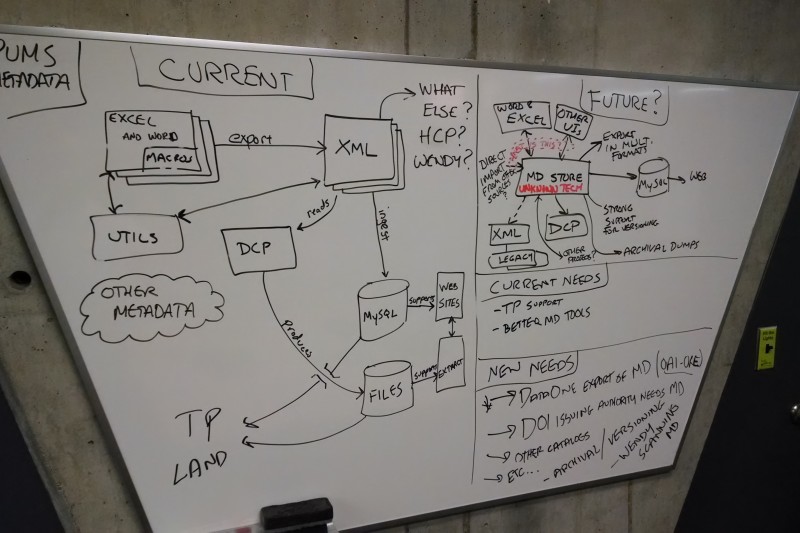 PUMS
METADATA
CURRENT
EXCEL
AND WORD
MACROS
export
XML
WHAT
ELSE?
HCP?
WENDY?
UTILS
reads
ingest
DCP
OTHER
METADATA
produces
MySQL
SUPPORTS
WEB
SITES
FILES
SUPPORTS
EXTRACT
TP
LAND
FUTURE?
WORD &
EXCEL
OTHER
UIs
WHAT IS THIS?
EXPORT
IN MULT.
FORMATS
DIRECT
IMPORT
FROM OTHER
SOURCES
?
MD STORE
UNKNOWN TECH
MySQL
WEB
XML
LEGACY
DCP
STRONG
SUPPORT
FOR VERSIONING
OTHER
PROJECTS?
ARCHIVAL DUMPS
CURRENT NEEDS
- TP SUPPORT
- BETTER MD TOOLS
NEW NEEDS
→ DATAONE EXPORT OF MD (OAI-ORE)
→ DOI ISSUING AUTHORITY NEEDS MD
→ OTHER CATALOGS
→ ETC...
- ARCHIVAL / VERSIONING
- WENDY SCANNING
MD